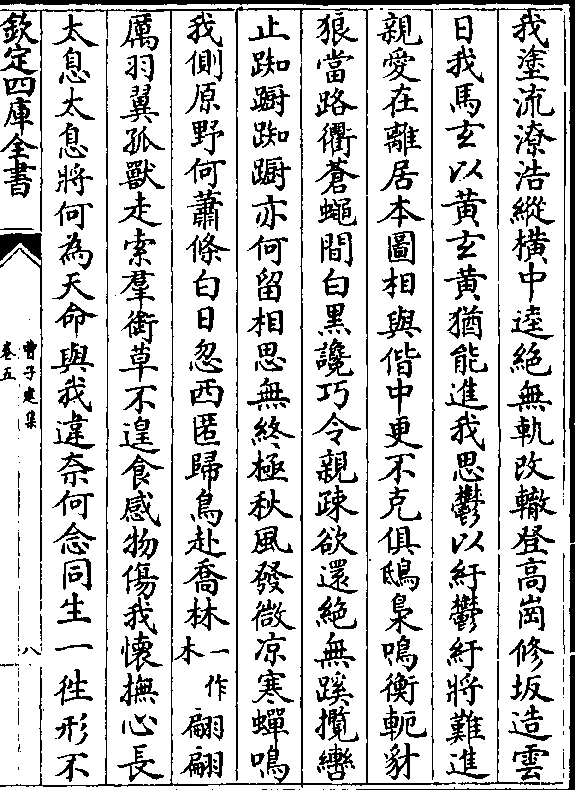 我塗流潦浩縱橫中逵絕無軌改轍登高崗修坂造雲
日我馬玄以黃玄黃猶能進我思鬱以紆鬱紆將難進
親愛在離居本圖相與偕中更不克俱鴟梟鳴衡軛豺
狼當路衢蒼蠅間白黑讒巧令親疎欲還絕無蹊攬轡
止踟躕踟躕亦何留相思無終極秋風發微凉寒蟬鳴
我側原野何蕭條白日忽西匿歸鳥赴喬林一作木翩翩
厲羽翼孤獸走索羣銜草不遑食感物傷我懷撫心長
太息太息將何為天命與我違奈何念同生一徃形不
欽定四庫全書
曹子建集
卷五
八